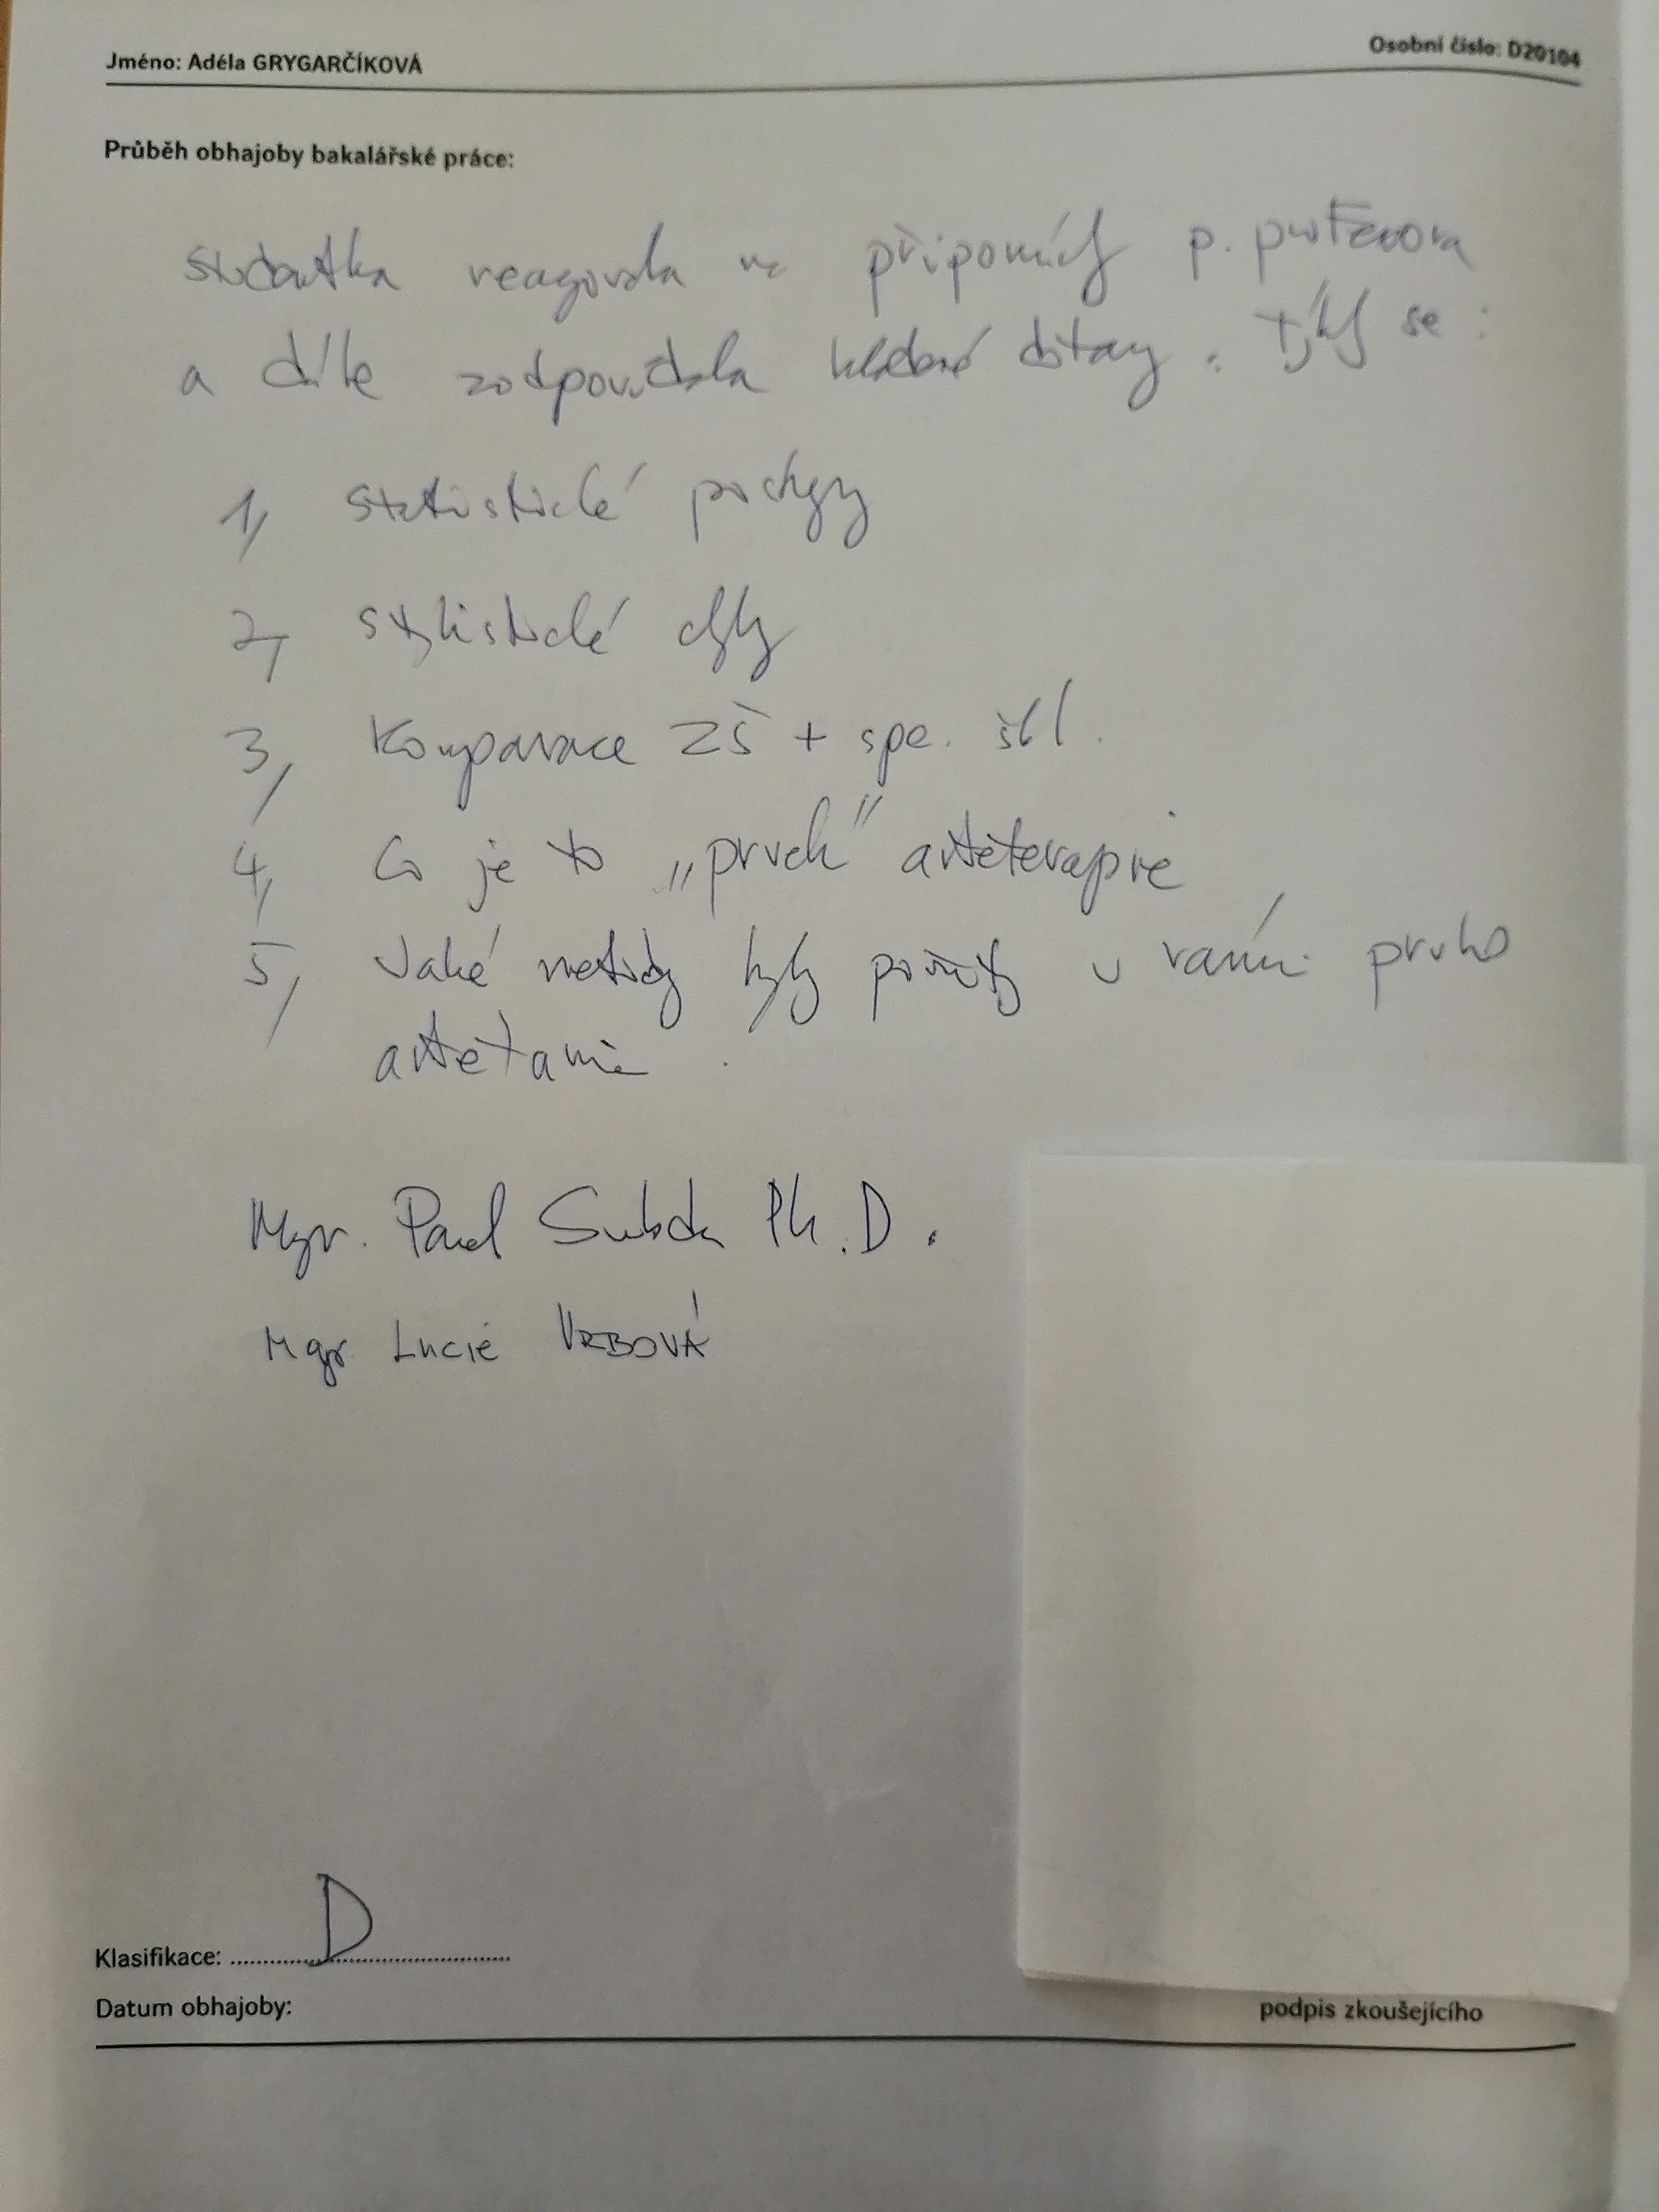 Jméno: Adéla GRYGARČÍKOVÁ
Osobní číslo: D20104
Průběh obhajoby bakalářské práce:
studentka reagovala na p.
a dále zodpověděla kladené dotazy. týkaj se:
1, statistické postupy
2, stylistické chyby
3, Komparace ZŠ + spe. škl.
4, Co je to „prvek" arteterapie
5, Jaké metody byly použity v rámci
Mgr. Pavel Ph.D.
Mgr Lucie VRBOVÁ
Klasifikace: D
Datum obhajoby:
podpis zkoušejícího